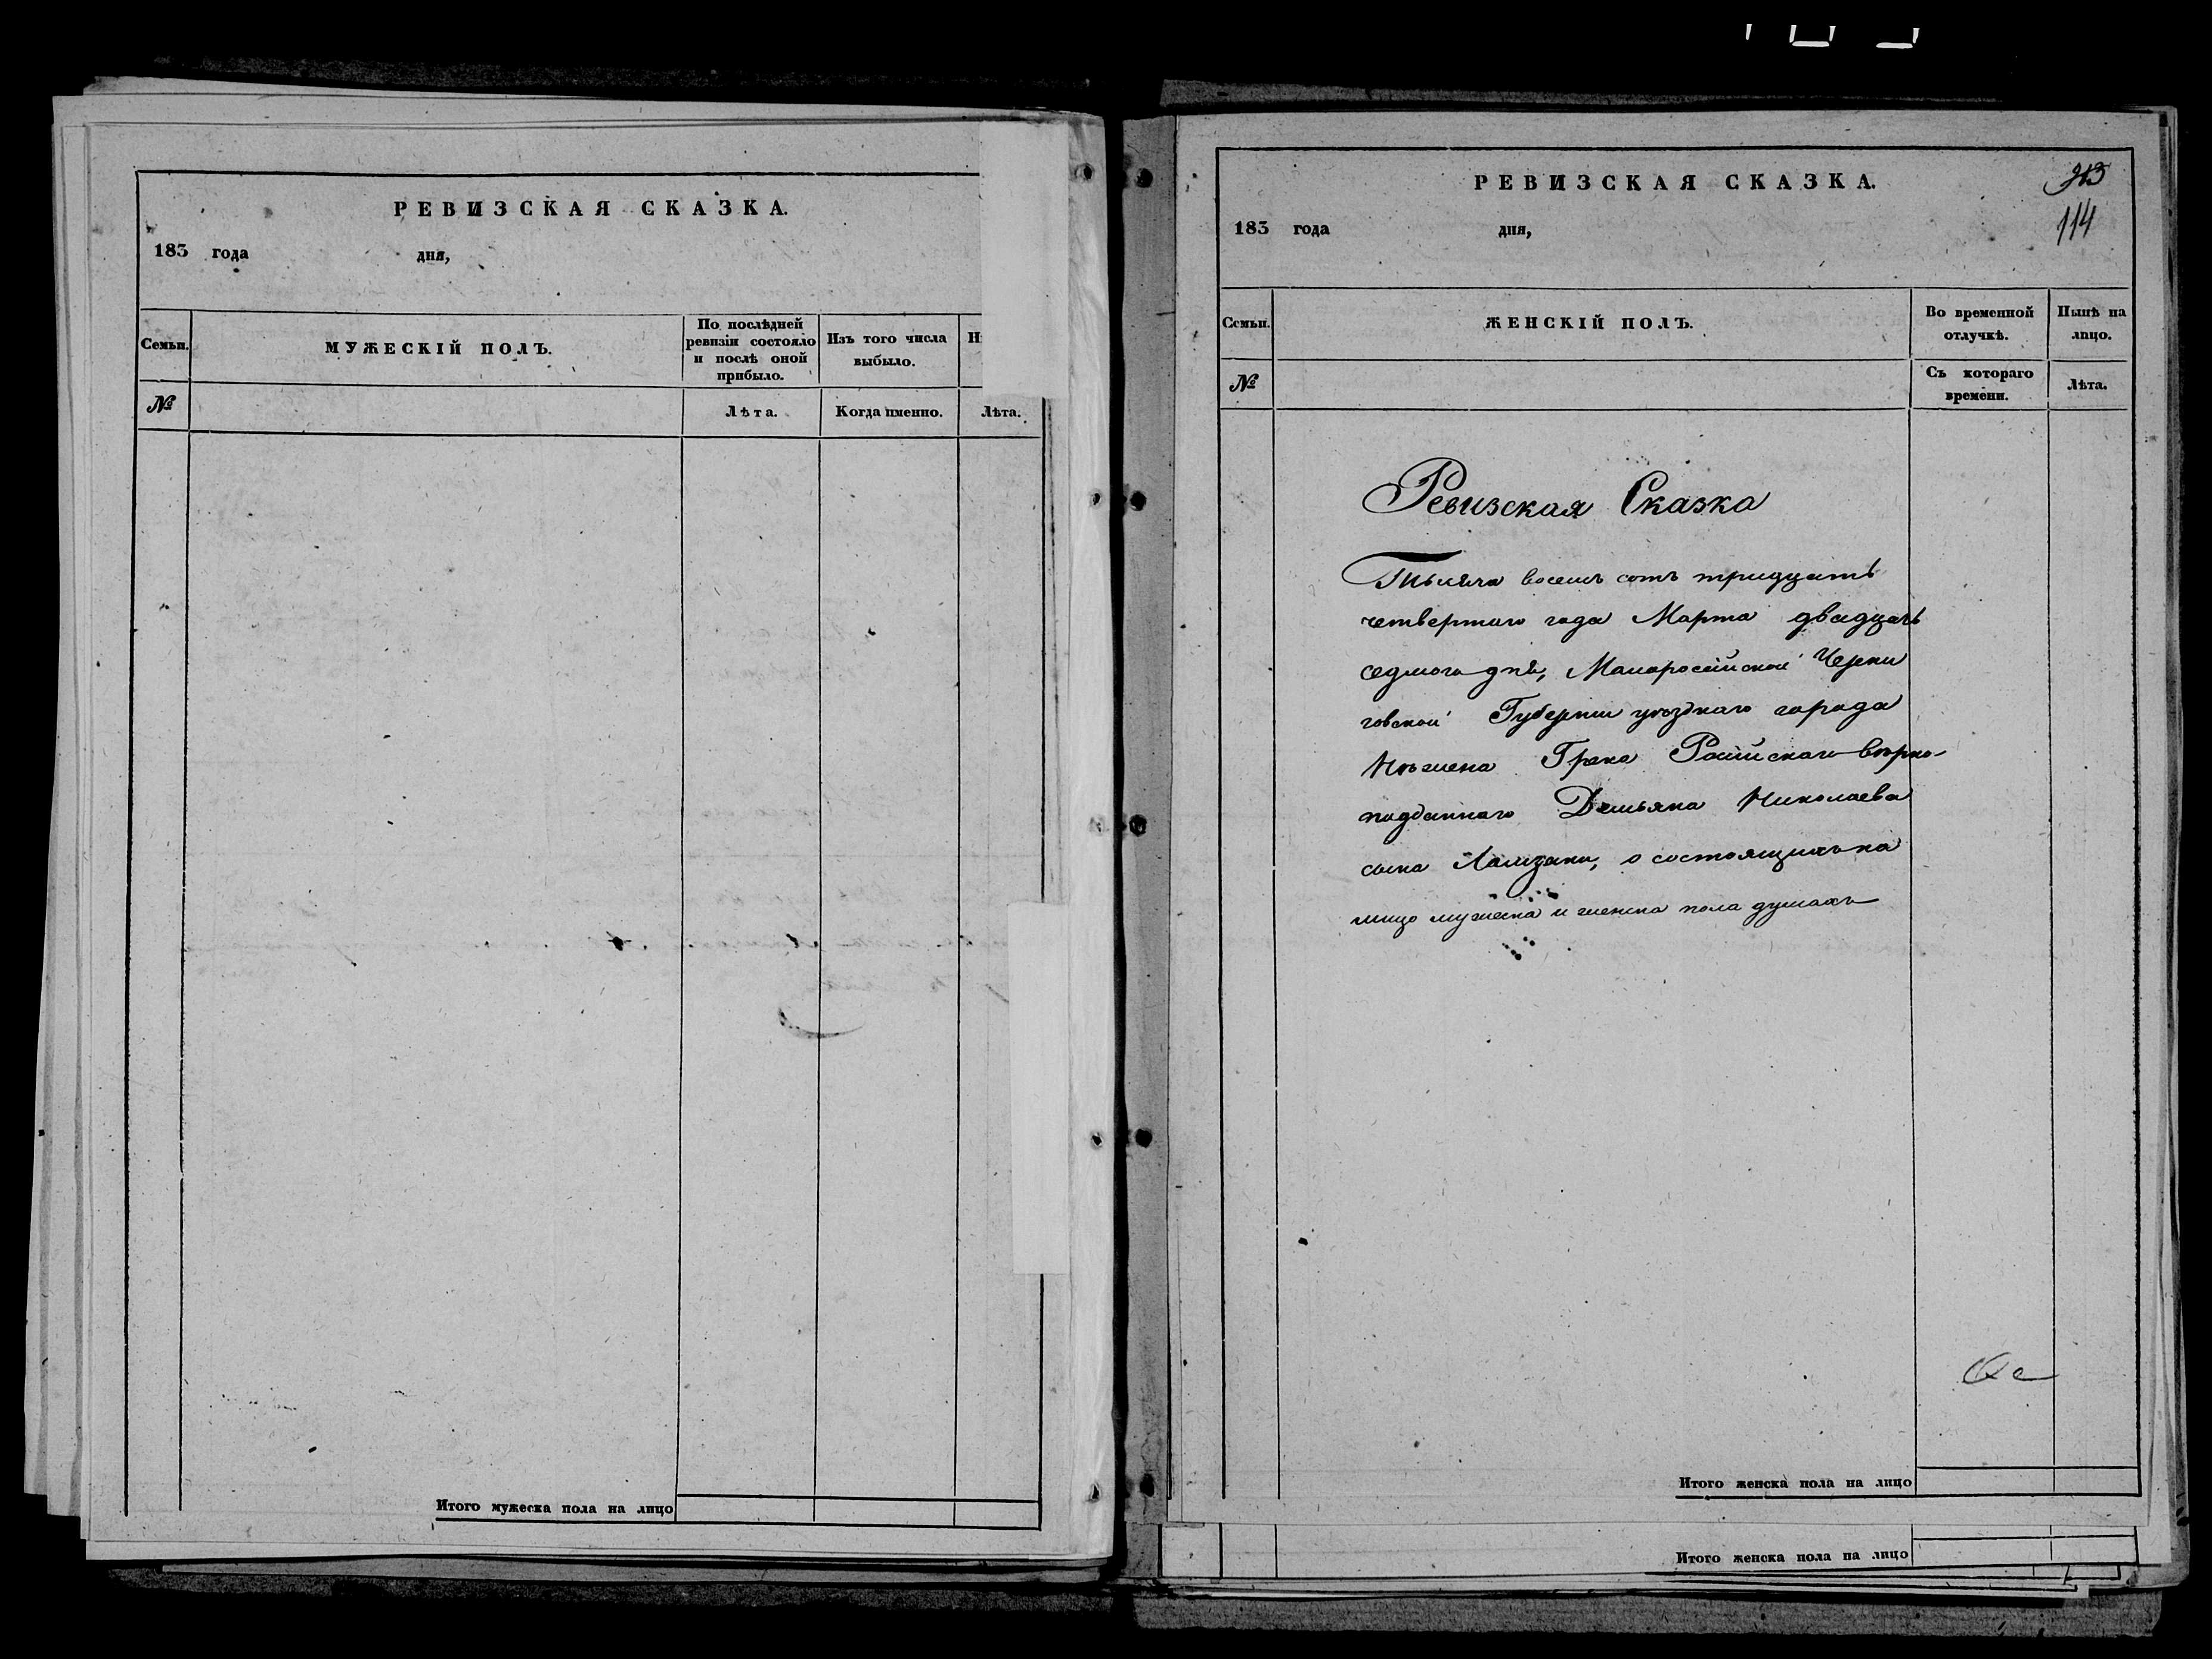 РЕВИЗСКАЯ СКАЗКА.
183 года дня,
Семьи.
МУЖЕСКІЙ ПОЛЪ.
По послѣдней
ревизіи состояло
и послѣ оной
прибыло.
Изъ того числа
выбыло.
№
Лѣта.
Когда именно.
Лѣта.
Итого мужеска пола на лицо
РЕВИЗСКАЯ СКАЗКА.
213
114
183 года дня,
Семьи.
ЖЕНСКІЙ ПОЛЪ.
Во временной
отлучкѣ.
Нынѣ на
лицо.
№
Съ котораго
времени.
Лѣта.
Ревизская Сказка
Тысяча восемь сотъ тридцать
четвертаго года Марта двадцать
седмого дня, Малоросійской Черни
говской Губерніи уѣзднаго города
Нѣжена Грека Російскаго вѣрно-
подданнаго Демьяна Николаева
сына о состоящихъ на
лицо мужеска и женска пола душахъ
Итого женска пола на лицо
Итого женска пола на лицо